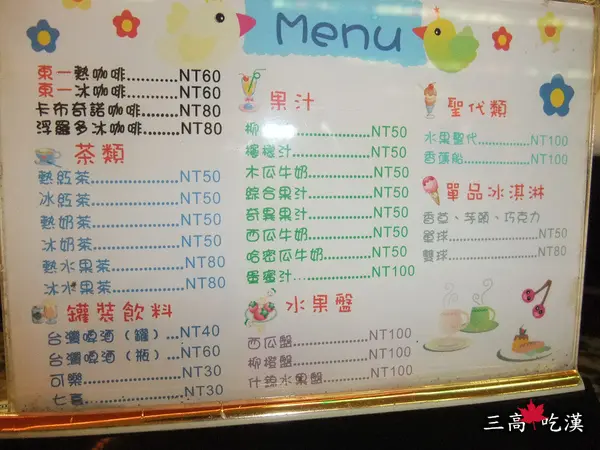 Menu
東一熱咖啡..........NT60
東一冰咖啡..........NT60
卡布奇諾咖啡......NT80
浮羅多冰咖啡......NT80
茶類
熱紅茶................NT50
冰紅茶................NT50
熱奶茶................NT50
冰奶茶................NT50
熱水果茶.............NT80
冰水果茶.............NT80
罐裝飲料
台灣啤酒（罐）...NT40
台灣啤酒（瓶）...NT60
可樂....................NT30
七喜....................NT30
果汁
柳 汁................NT50
檸檬汁................NT50
木瓜牛奶.............NT50
綜合果汁.............NT50
奇異果汁.............NT50
西瓜牛奶.............NT50
哈密瓜牛奶..........NT50
蛋蜜汁................NT100
水果盤
西瓜盤................NT100
柳橙盤................NT100
什錦水果盤..........NT100
聖代類
水果聖代.............NT100
香蕉船................NT100
單品冰淇淋
香草、芋頭、巧克力
單球....................NT50
雙球....................NT80
三高吃漢